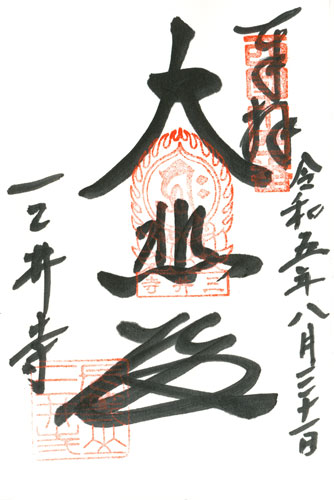 奉拝
令和五年八月二十一日
大悲殿
三井寺